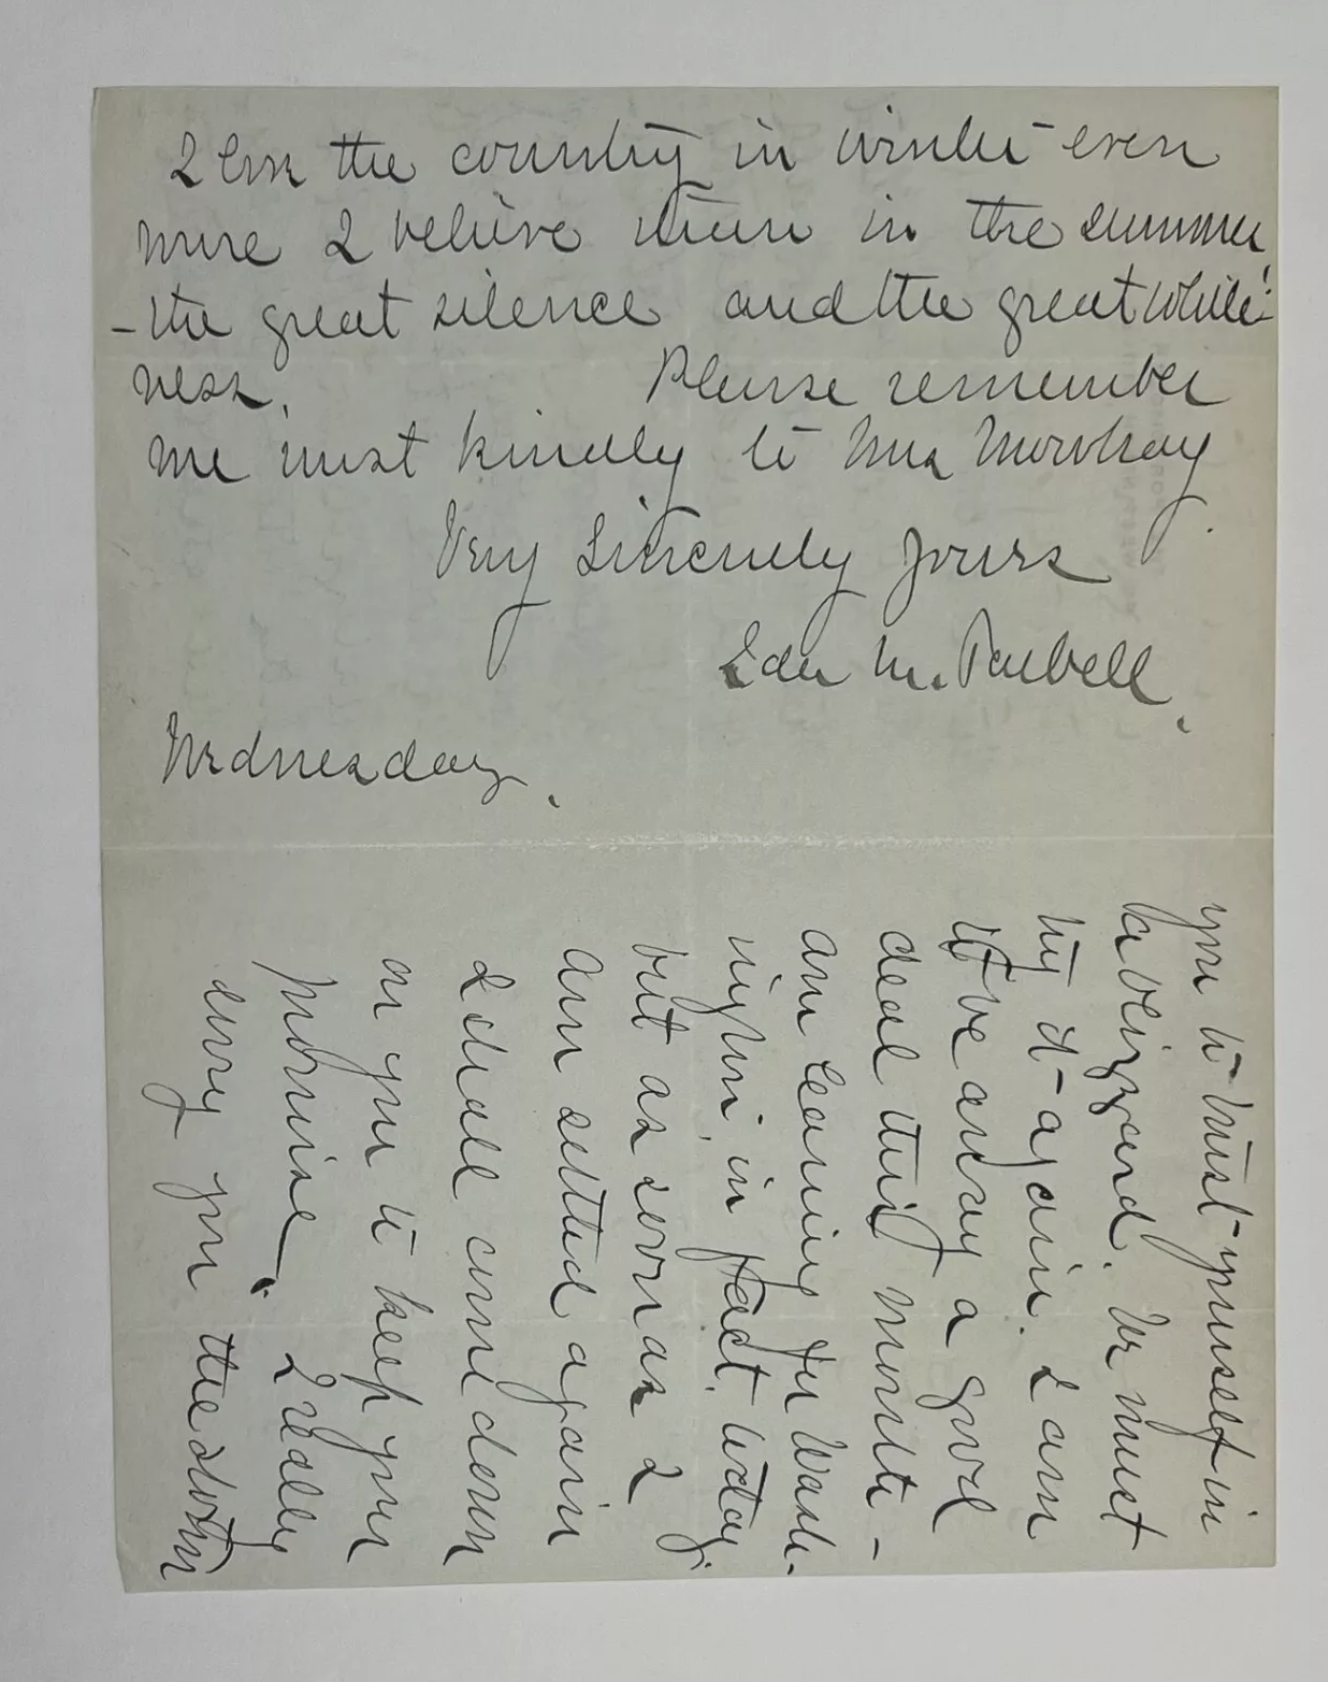 you to trust yourself in
a blizzard. We must
try it again. I am
to be away a good
deal this month -
am leaving for Wash-
ington, in fact, today.
but as soon as I
am settled again
I shall come down
on you to keep your
promise. I really
envy you the storm
I love the country in winter even
more I believe than in the summer
- the great silence and the great white-
ness. Please remember
me most kindly to Mrs Mowbray
Very Sincerely yours
Ida M. Tarbell.
Wednesday.